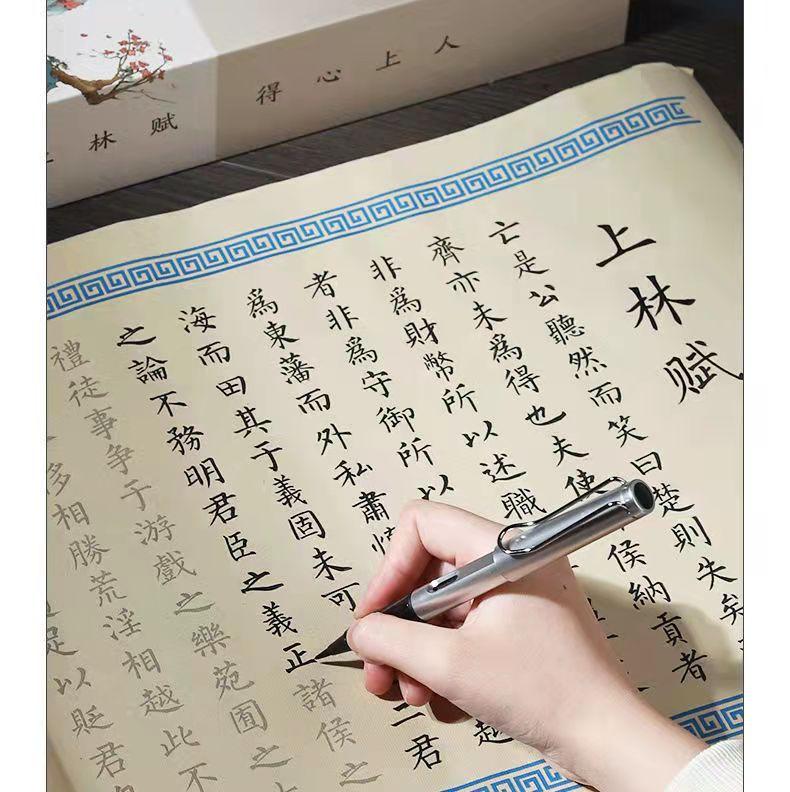 林赋 得心上人
上林赋
亡是公聽然而笑曰楚則失矣
齊亦未爲得也夫使侯納貢者
非爲財幣所以述職
者非爲守御所以
爲東藩而外私肅越
海而田其于義固未可二君
之論不務明君臣之義正諸侯之
禮徒事争于游戲之樂苑囿之
侈相勝荒淫相越此不
足以貶君